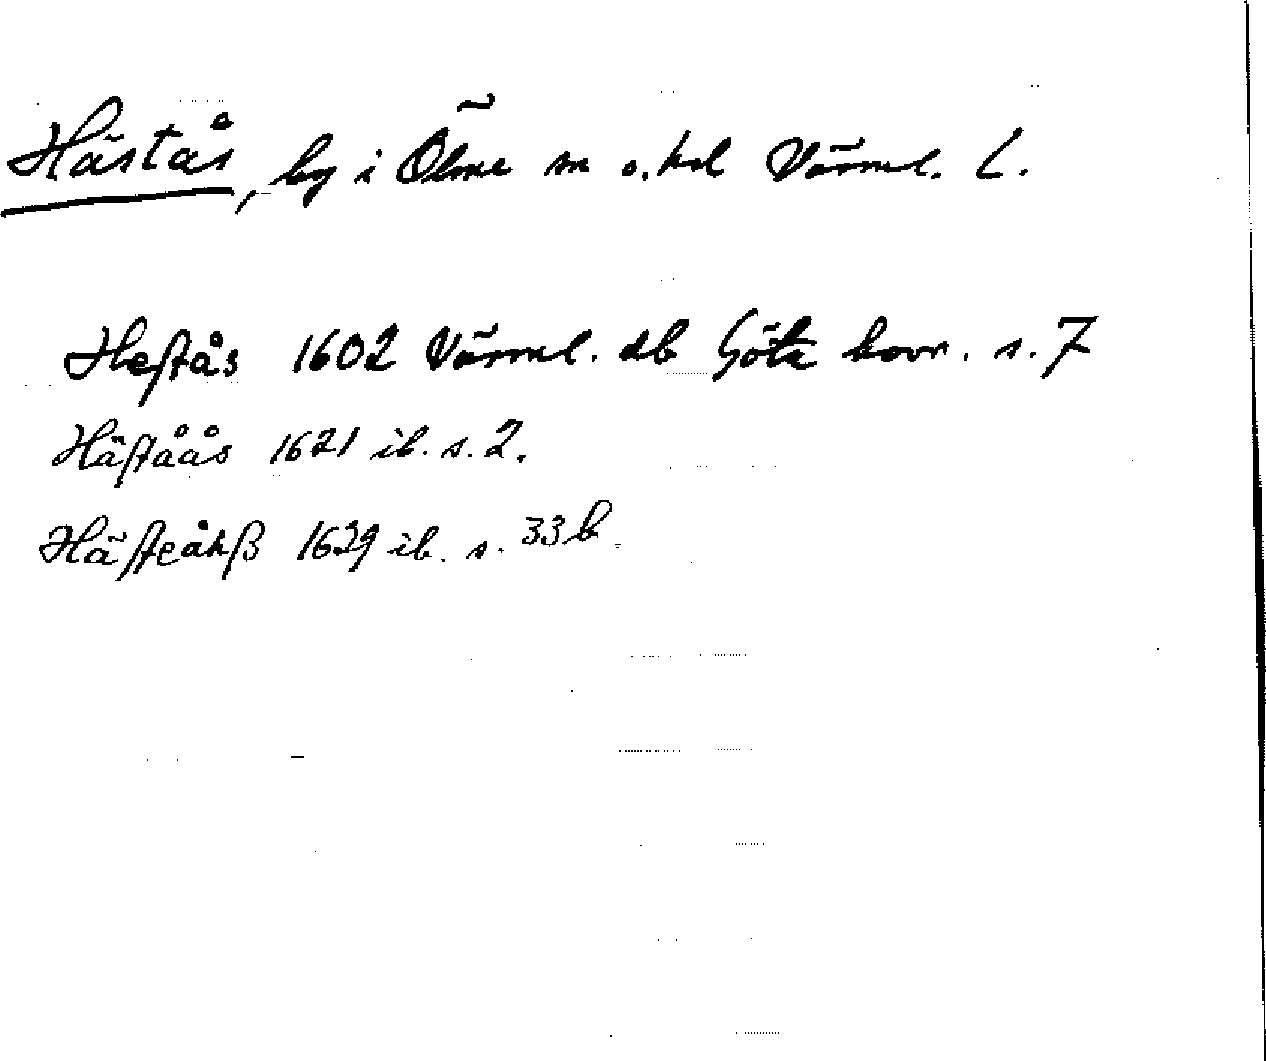 Hästås, by i Ölme sn o. hd Värml. L.
Heſtås 1602 Värml. db Göta hovr. s. 7
Häſtåås 1621 ib. s. 2.
Häſteåhß 1639 ib. s. 33 b.